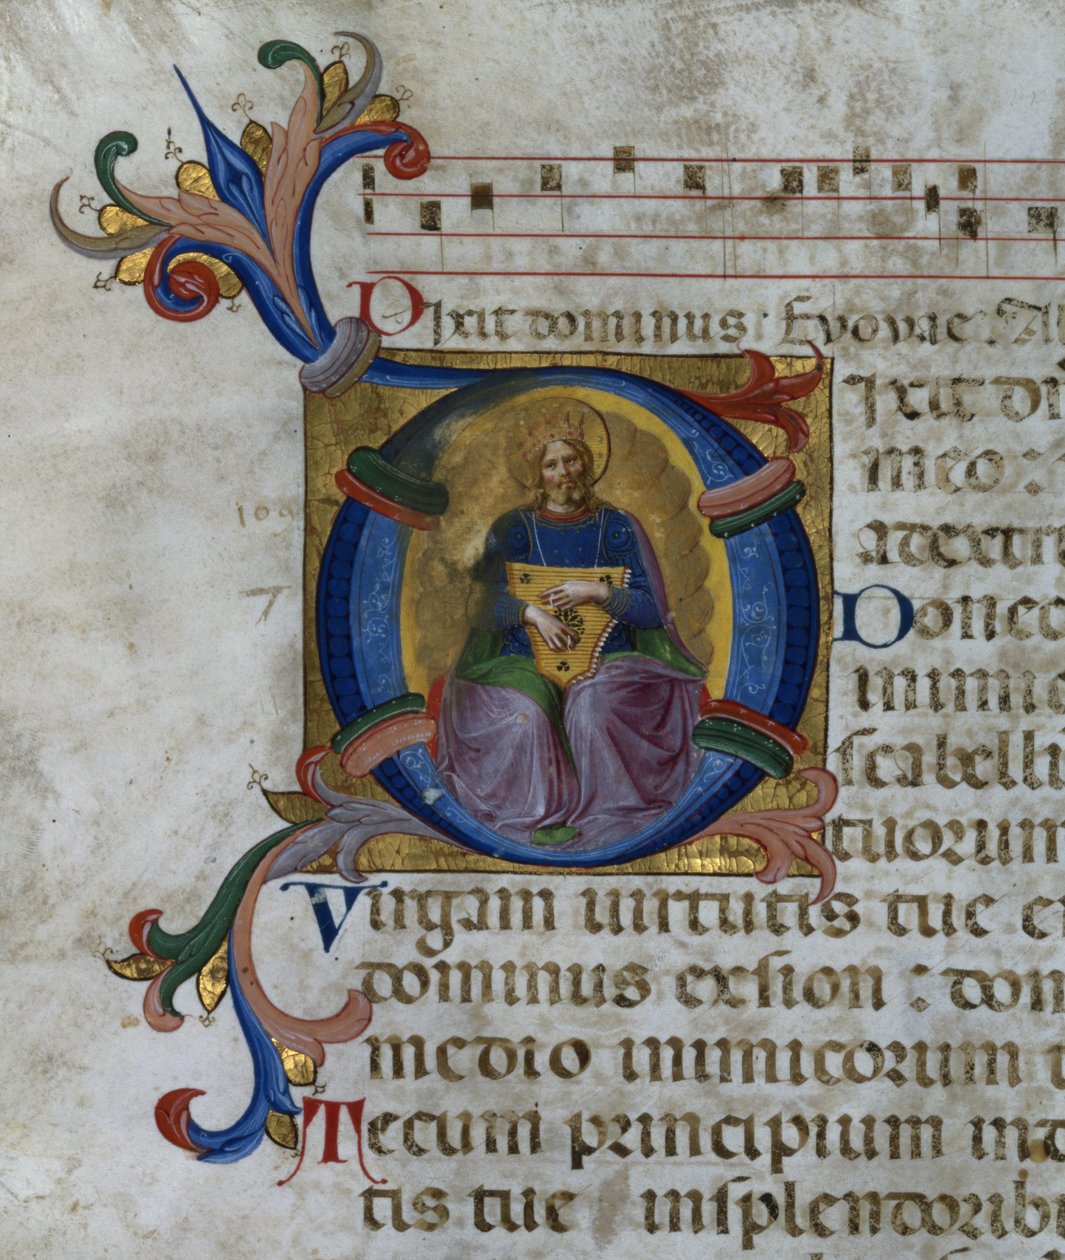 Dixit dominus. Evovae. Al
Dixit do
meo :
109. a dextri
Donec
inimic
scabelli
tuorum
Virgam virtutis tue e
dominus ex sion : domi
medio inimicorum t
Tecum principium in d
tis tue in splendorib